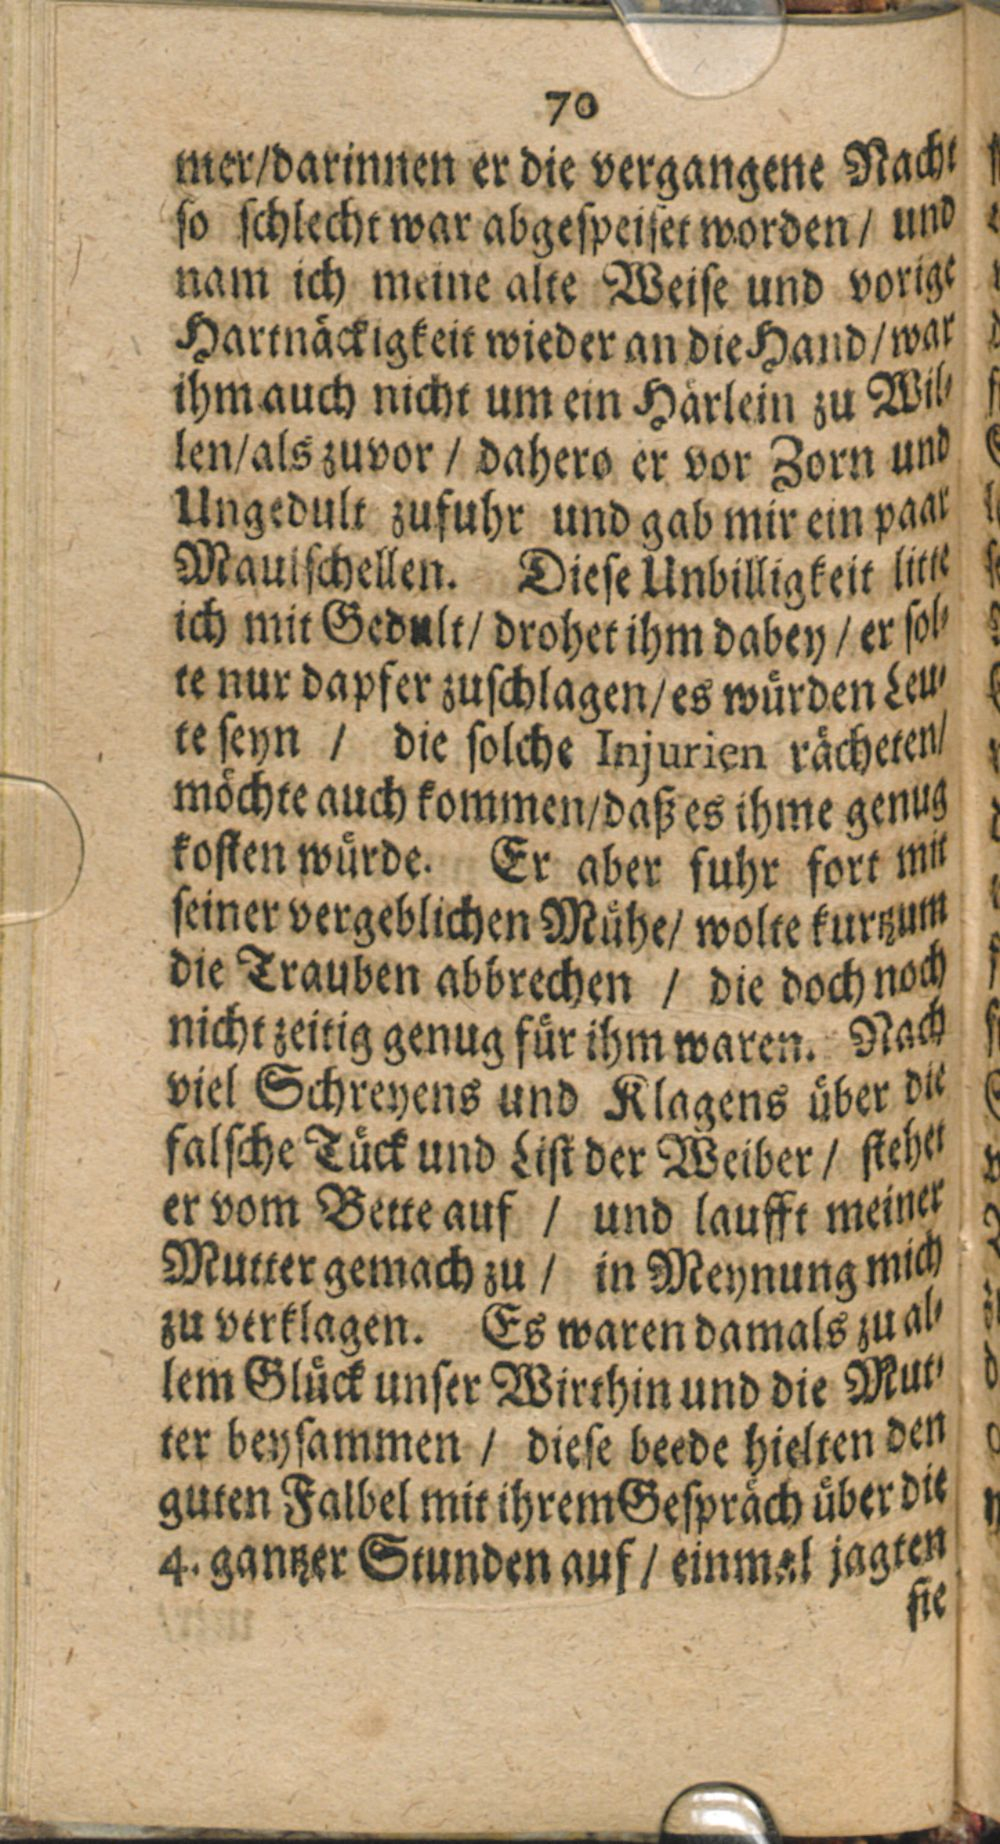 70
mer/darinnen er die vergangene Nacht
so schlecht war abgespeiset worden/ und
nam ich meine alte Weise und vorige
Hartnäckigkeit wieder an die Hand/war
ihm auch nicht um ein Härlein zu Wil-
len/als zuvor / dahero er vor Zorn und
Ungedult zufuhr und gab mir ein paar
Maulschellen. Diese Unbilligkeit litte
ich mit Gedult/ drohet ihm dabey / er sol-
te nur dapfer zuschlagen/es würden Leu-
te seyn / die solche Injurien rächeten/
möchte auch kommen/daß es ihme genug
kosten würde. Er aber fuhr fort mit
seiner vergeblichen Mühe/ wolte kurtzum
die Trauben abbrechen / die doch noch
nicht zeitig genug für ihm waren. Nach
viel Schreyens und Klagens über die
falsche Tück und List der Weiber / stehet
er vom Bette auf / und laufft meiner
Mutter gemach zu / in Meynung mich
zu verklagen. Es waren damals zu al-
lem Glück unser Wirthin und die Mut-
ter beysammen / diese beede hielten den
guten Falbel mit ihrem Gespräch über die
4. gantzer Stunden auf / einmal jagten
sie